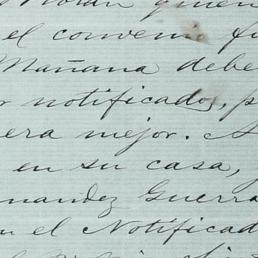 Moran quien
el convenio fu
Mañana debe
r notificado, p
era mejor. A
en su casa,
nandez Guerra
n el Notificad